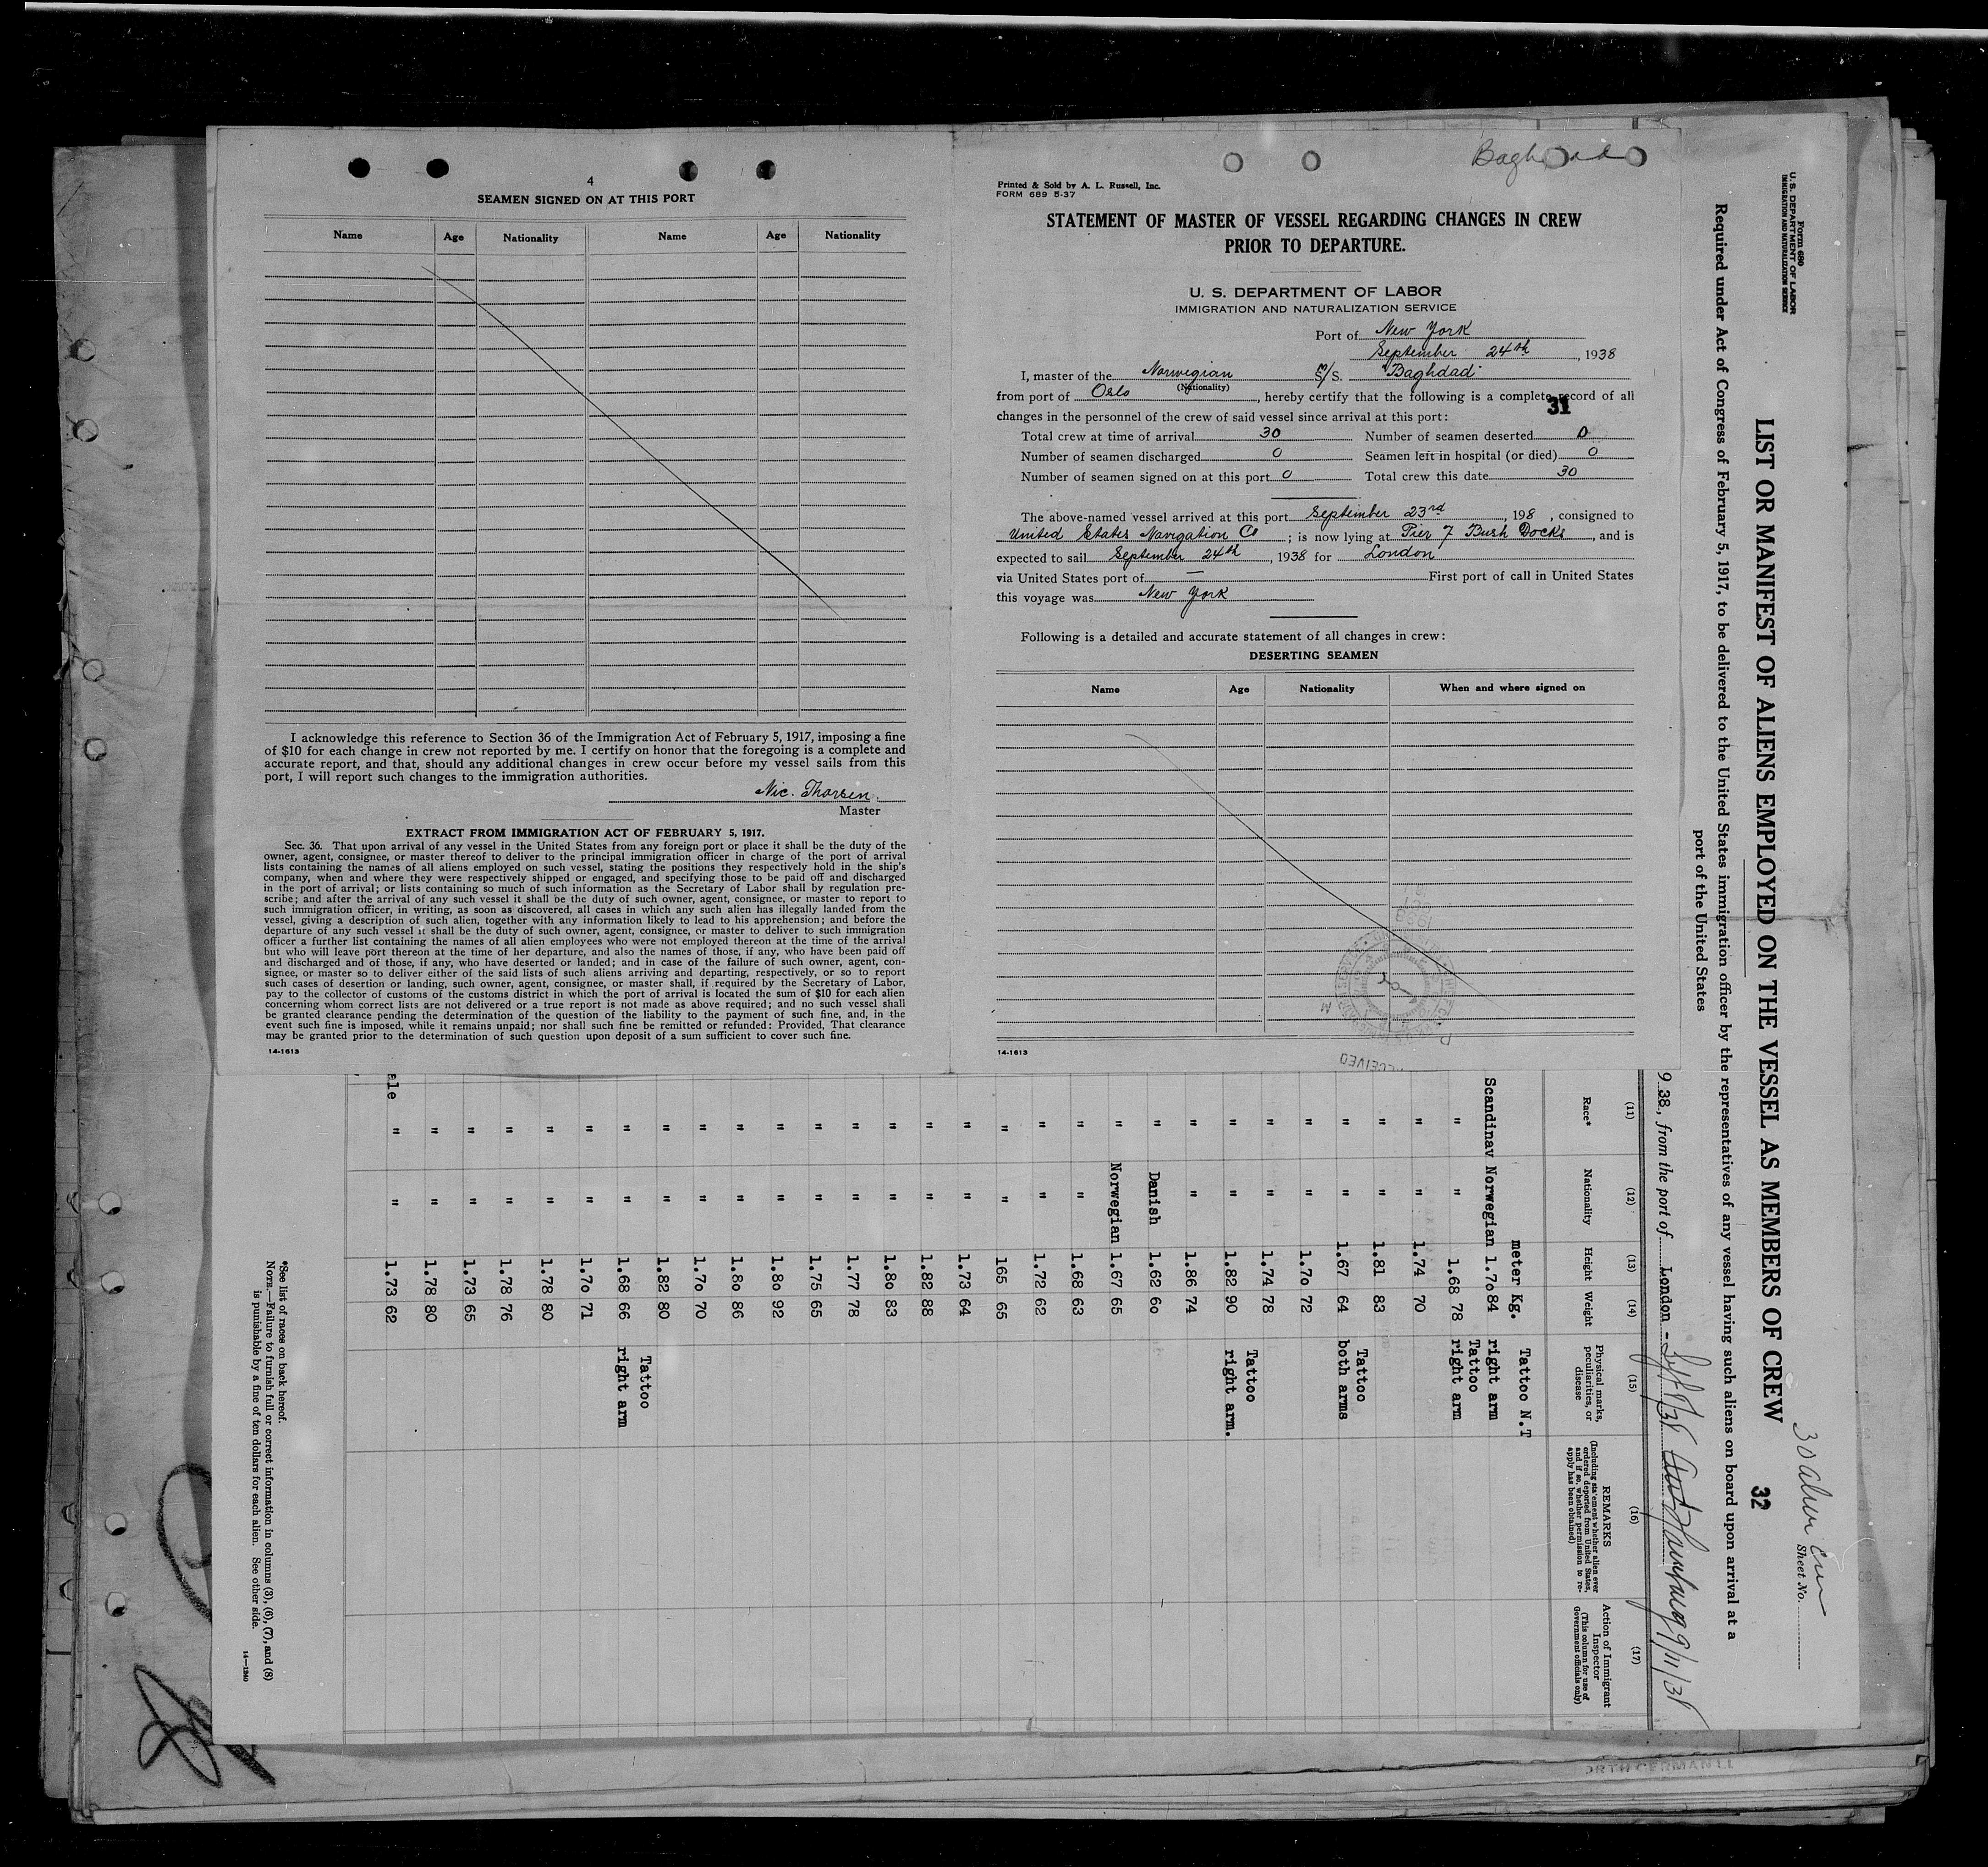 4
SEAMEN SIGNED ON AT THIS PORT
Name Age Nationality Name Age Nationality
I acknowledge this reference to Section 36 of the Immigration Act of February 5, 1917, imposing a fine
of $10 for each change in crew not reported by me. I certify on honor that the foregoing is a complete and
accurate report, and that, should any additional changes in crew occur before my vessel sails from this
port, I will report such changes to the immigration authorities.
Nic. Thorsen.
Master
EXTRACT FROM IMMIGRATION ACT OF FEBRUARY 5, 1917.
Sec. 36. That upon arrival of any vessel in the United States from any foreign port or place it shall be the duty of the
owner, agent, consignee, or master thereof to deliver to the principal immigration officer in charge of the port of arrival
lists containing the names of all aliens employed on such vessel, stating the positions they respectively hold in the ship's
company, when and where they were respectively shipped or engaged, and specifying those to be paid off and discharged
in the port of arrival; or lists containing so much of such information as the Secretary of Labor shall by regulation pre-
scribe; and after the arrival of any such vessel it shall be the duty of such owner, agent, consignee, or master to report to
such immigration officer, in writing, as soon as discovered, all cases in which any such alien has illegally landed from the
vessel, giving a description of such alien, together with any information likely to lead to his apprehension; and before the
departure of any such vessel it shall be the duty of such owner, agent, consignee, or master to deliver to such immigration
officer a further list containing the names of all alien employees who were not employed thereon at the time of the arrival
but who will leave port thereon at the time of her departure, and also the names of those, if any, who have been paid off
and discharged and of those, if any, who have deserted or landed; and in case of the failure of such owner, agent, con-
signee, or master so to deliver either of the said lists of such aliens arriving and departing, respectively, or so to report
such cases of desertion or landing, such owner, agent, consignee, or master shall, if required by the Secretary of Labor,
pay to the collector of customs of the customs district in which the port of arrival is located the sum of $10 for each alien
concerning whom correct lists are not delivered or a true report is not made as above required; and no such vessel shall
be granted clearance pending the determination of the question of the liability to the payment of such fine, and, in the
event such fine is imposed, while it remains unpaid; nor shall such fine be remitted or refunded: Provided, That clearance
may be granted prior to the determination of such question upon deposit of a sum sufficient to cover such fine.
14-1613
Baghdad
Printed & Sold by A. L. Russell, Inc.
FORM 689 5-37
STATEMENT OF MASTER OF VESSEL REGARDING CHANGES IN CREW
PRIOR TO DEPARTURE.
U. S. DEPARTMENT OF LABOR
IMMIGRATION AND NATURALIZATION SERVICE
Port of New York
September 24th, 1938
I, master of the Norwegian M/S. "Baghdad"
(Nationality)
from port of Oslo, hereby certify that the following is a complete record of all
31
changes in the personnel of the crew of said vessel since arrival at this port:
Total crew at time of arrival 30 Number of seamen deserted 0
Number of seamen discharged 0 Seamen left in hospital (or died) 0
Number of seamen signed on at this port 0 Total crew this date 30
The above-named vessel arrived at this port September 23rd, 198 , consigned to
United States Navigation Co; is now lying at Pier 7 Bush Docks, and is
expected to sail September 24th, 1938 for London
via United States port of — First port of call in United States
this voyage was New York
Following is a detailed and accurate statement of all changes in crew:
DESERTING SEAMEN
Name Age Nationality When and where signed on
RECEIVED
14-1613
Form 689
U. S. DEPARTMENT OF LABOR
IMMIGRATION AND NATURALIZATION SERVICE
30 alien crew
Sheet No.
LIST OR MANIFEST OF ALIENS EMPLOYED ON THE VESSEL AS MEMBERS OF CREW 32
Required under Act of Congress of February 5, 1917, to be delivered to the United States immigration officer by the representatives of any vessel having such aliens on board upon arrival at a
port of the United States
9 38, from the port of London -
(11) (12) (13) (14) (15) (16) (17)
Race* Nationality Height Weight Physical marks, peculiarities, or disease REMARKS (Including statement whether alien ever ordered deported from United States, and if so, whether permission to re-apply has been obtained) Action of Immigrant Inspector (This column for use of Government officials only)
meter Kg. Tattoo N.T
Scandinav Norwegian 1.70 84 right arm
Tattoo
" " 1.68 78 right arm
" " 1.74 70
" " 1.81 83
Tattoo
" " 1.67 64 both arms
" " 1.70 72
" " 1.74 78
Tattoo
" " 1.82 90 right arm.
" " 1.86 74
" Danish 1.62 60
" Norwegian 1.67 65
" " 1.68 63
" " 1.72 62
" " 165 65
" " 1.73 64
" " 1.82 88
" " 1.80 83
" " 1.77 78
" " 1.75 65
" " 1.80 92
" " 1.80 86
" " 1.70 70
" " 1.82 80
Tattoo
" " 1.68 66 right arm
" " 1.70 71
" " 1.78 80
" " 1.78 76
" " 1.73 65
" " 1.78 80
ale " " 1.73 62
*See list of races on back hereof.
NOTE.—Failure to furnish full or correct information in columns (3), (6), (7), and (8)
is punishable by a fine of ten dollars for each alien. See other side.
14-1240